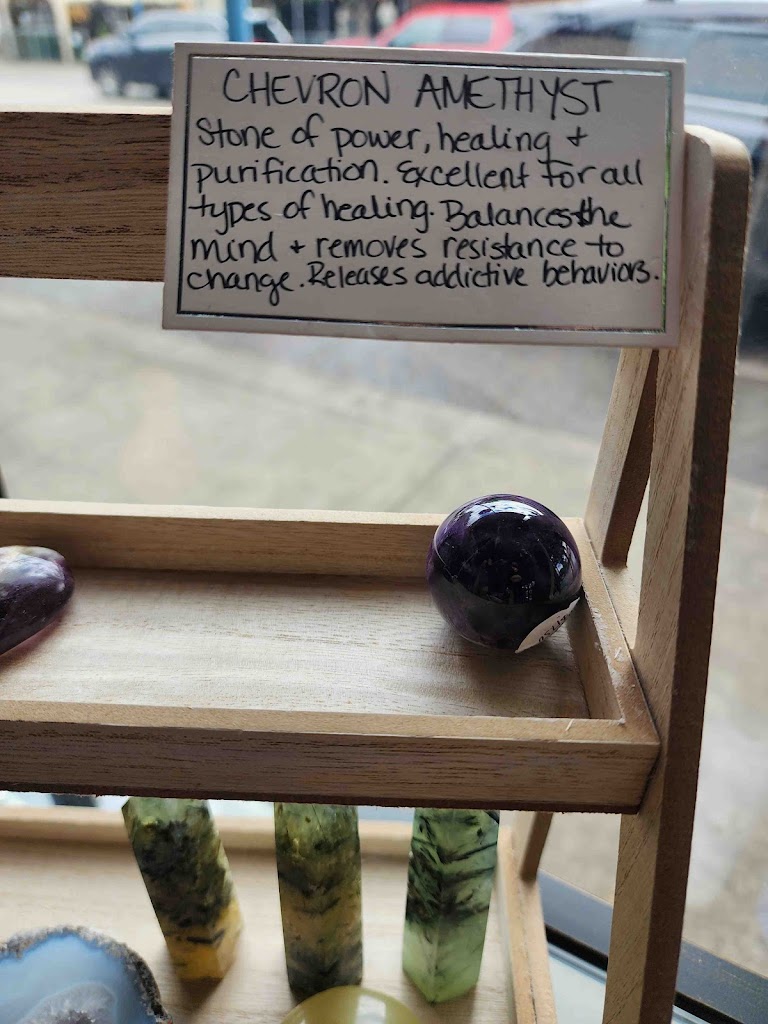 CHEVRON AMETHYST
Stone of power, healing +
purification. Excellent for all
types of healing. Balances the
mind + removes resistance to
change. Releases addictive behaviors.